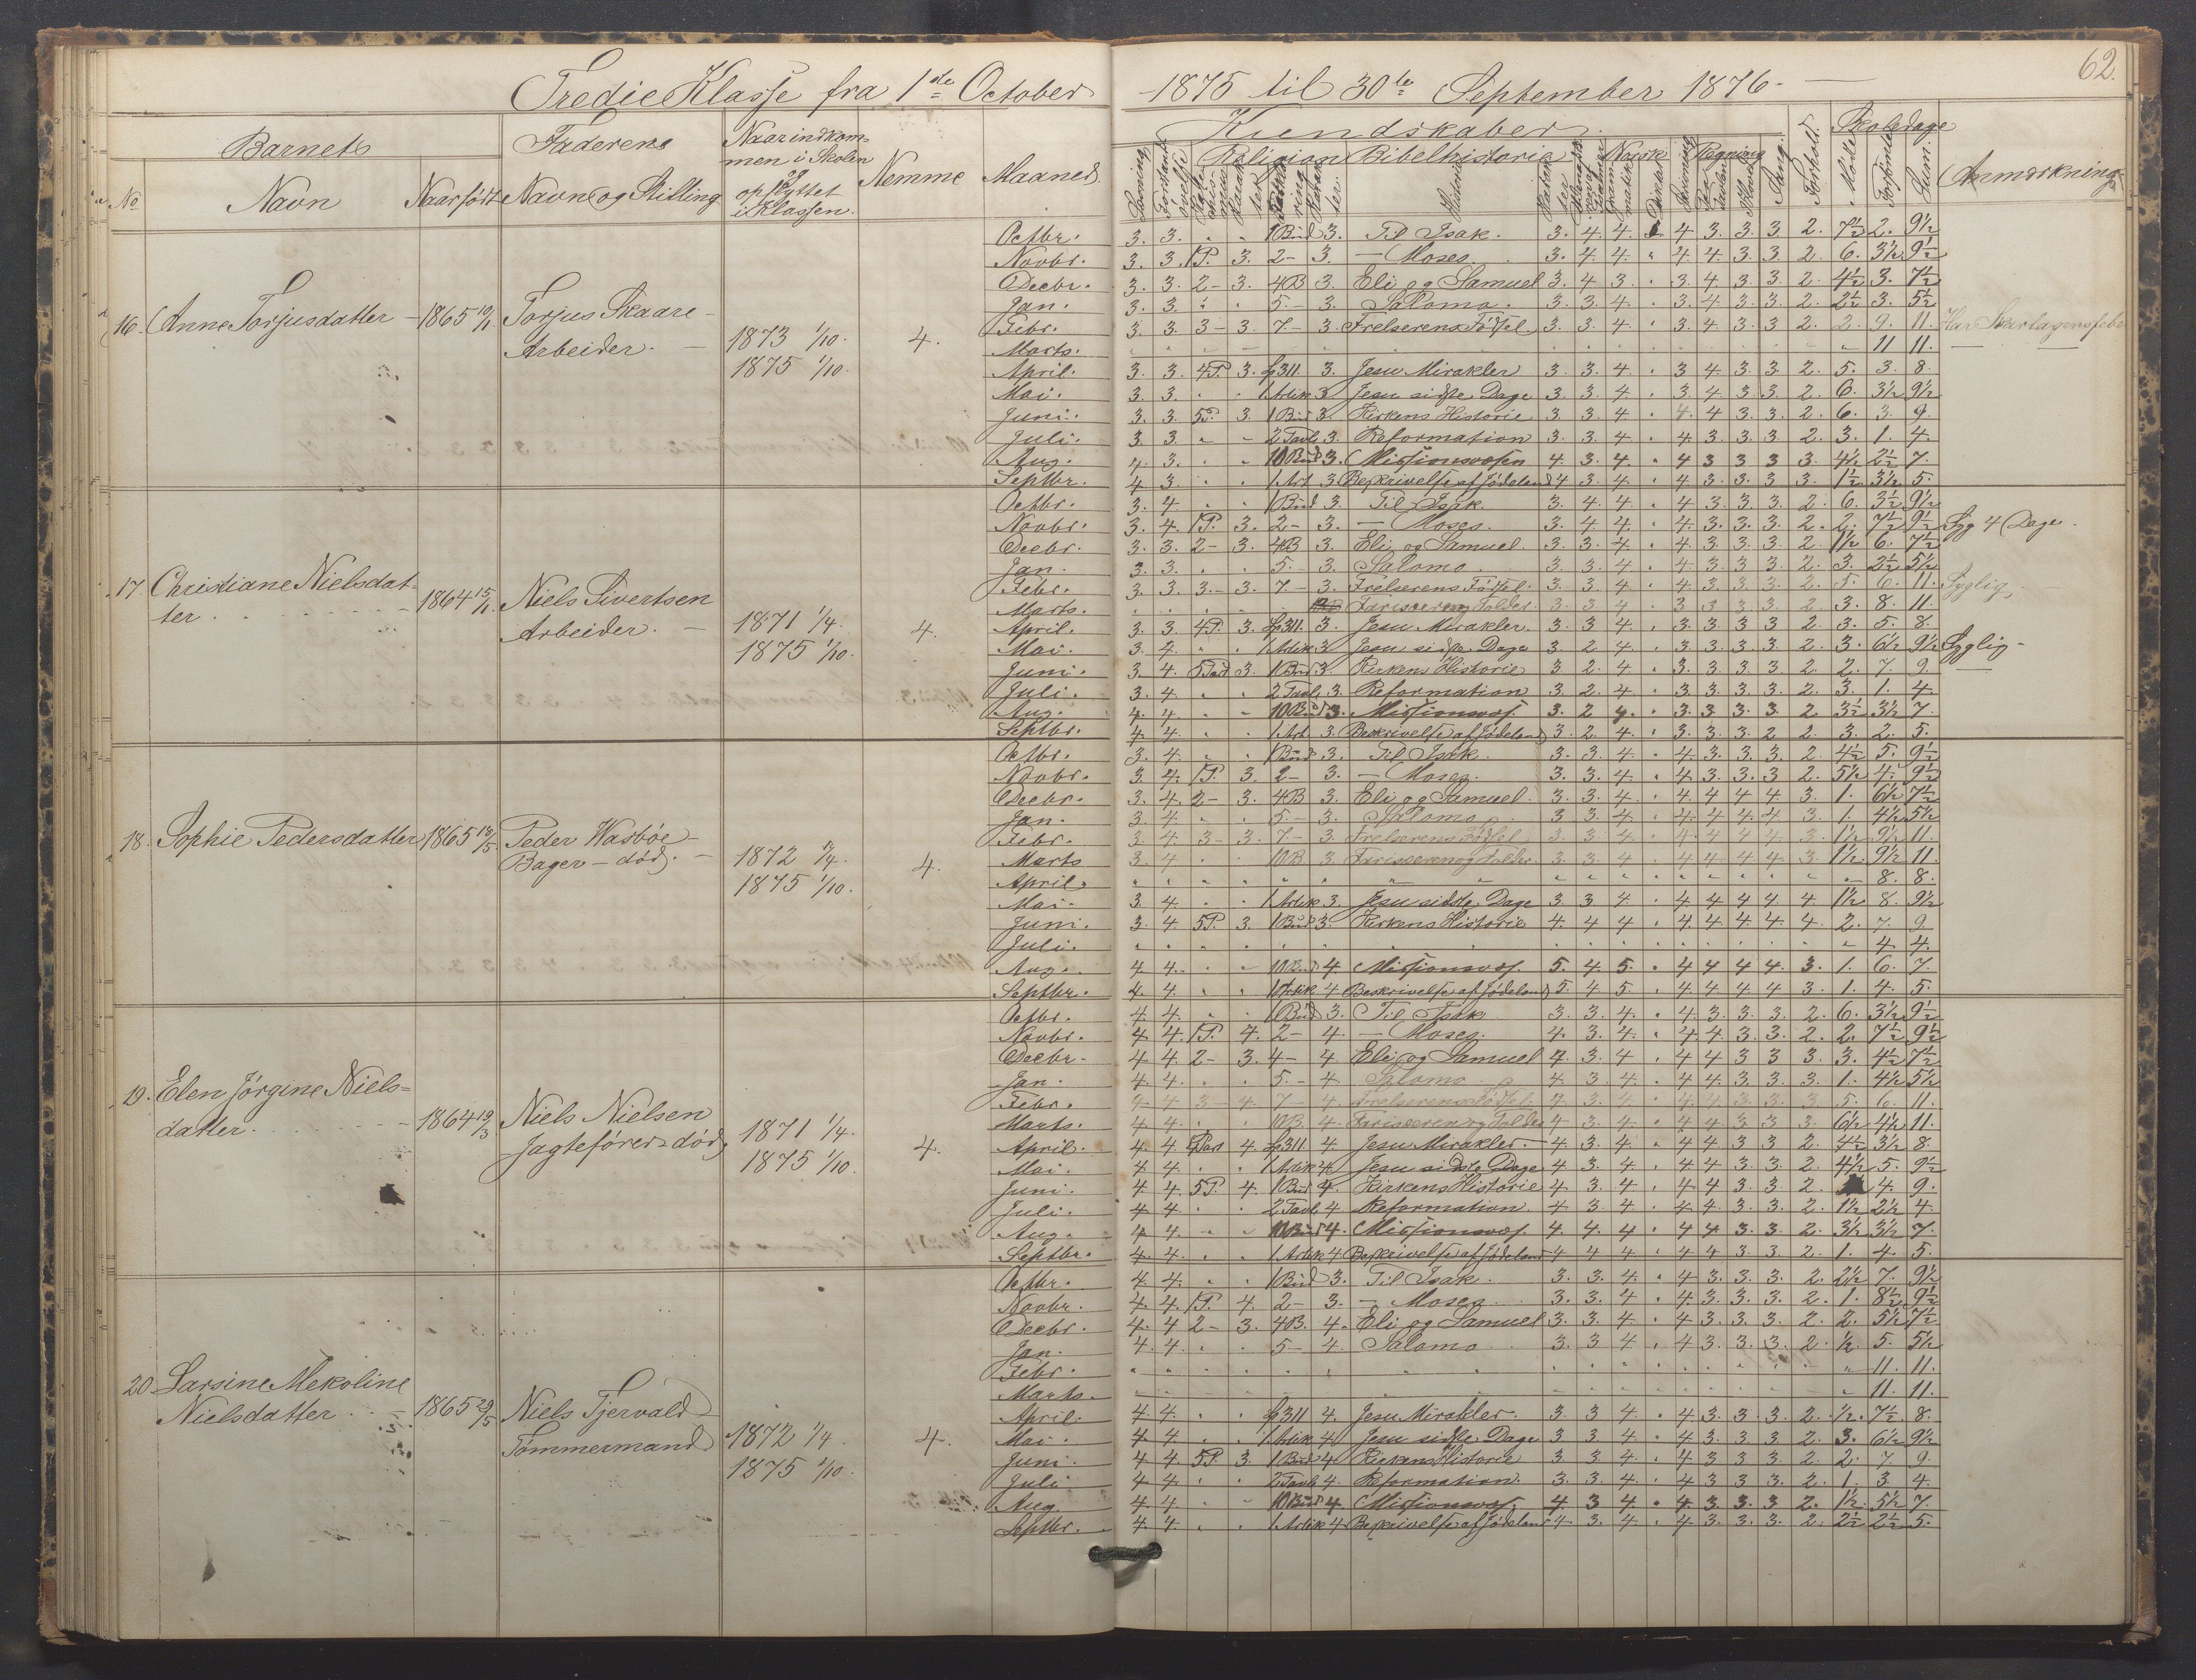 62.
Tredie Klasse fra 1ste October 1875 til 30te September 1876
Barnets
Faderens
Naar indkommen i Skolen og flyttet i Klassen.
Nemme
Maaned.
Kundskaber.
Religion
Bibelhistorie
Norsk
Regning
Sang.
Forhold.
Skoledage
Mødte
Forsømte
Sum.
Anmærkning
No
Navn
Naar født
Navn og Stilling
16. Anne Torjusdatter
1865 19/11
Torjus Skaare
Arbeider.
1873 1/10.
1875 1/10.
4.
Octbr. 3. 3. 1 Bud 3. Til Isak. 3. 4. 4. 4 3. 3. 3 2. 7½ 2. 9½
Novbr. 3. 3. 1P. 3. 2- 3. — Moses. 3. 4. 4. 4. 4. 3. 3 2. 6. 3½ 9½
Decbr. 3. 3. 2- 3. 4B 3. Eli og Samuel 3. 4 3. 3. 4. 3. 3 2. 4½ 3. 7½
Jan. 3. 3. 5- 3. Salomo. 3. 3. 4. 3. 4. 3. 3. 2. 2½ 3. 5½
Febr. 3. 3. 3- 3. 7- 3. Frelserens Fødsel. 3. 3. 4. 3. 4. 3. 3 2. 2. 9. 11. Har Skarlagensfeber
Marts. 11 11.
April. 3. 3. 4P. 3. 3. Jesu Mirakler 3. 3. 4. 3 4. 3. 3 2. 5. 3. 8.
Mai. 3. 3. 1 Artik 3 Jesu sidste Dage 3. 3. 4. 3 4. 3. 3 2. 6. 3½ 9½
Juni. 3. 3. 5P. 3. 1 Bud 3. Kirkens Historie 3. 3. 4. 4. 4 3. 3. 2. 6. 3. 9.
Juli. 3 3. 2 Tavle 3. Reformation 3. 3. 4. 4. 3. 3. 3 2. 3. 1. 4.
Aug. 4. 3. 10 Bud 3. Missionsvæsen 4. 3. 4. 4 3 3 3 3. 4½ 2½ 7.
Septbr. 4 3. 1 Art 3. Beskrivelse af Jødeland 4 3. 4. 4 3. 3. 3 3. 1½ 3½ 5.
17. Christiane Nielsdatter.
1864 15/11.
Niels Sivertsen
Arbeider.
1871 1/4.
1875 1/10.
4.
Octbr. 3. 4. 1 Bud 3. Til Isak. 3. 4. 4. 4. 3. 3. 3. 2. 6. 3½ 9½
Novbr. 3. 4. 1P. 3. 2- 3. — Moses. 3. 4 4. 4. 3. 3. 3. 2. 2. 7½ 9½ Syg 4 Dage.
Decbr. 3. 3. 2- 3. 4B 3. Eli og Samuel. 3. 3. 4. 4. 3. 3. 3. 2. 1½ 6. 7½
Jan. 3. 3. 5- 3. Salomo 3. 3. 4. 4. 3. 3. 3. 2. 3. 2½ 5½
Febr. 3. 3. 3- 3. 7- 3. Frelserens Fødsel. 3. 3. 4 4. 3. 3. 3. 2. 5. 6. 11. Syglig
Marts. Fariseeren og Tolder. 3. 3 4. 3 3 3. 3. 2. 3. 8. 11.
April. 3. 3. 4P. 3. 3. Jesu Mirakler. 3. 3. 4. 3. 3. 3 3 2. 3. 5. 8.
Mai. 3. 4. 1 Artik 3 Jesu sidste Dage 3 2 4. 3. 3. 3. 3 2. 3. 6½ 9½ Syglig
Juni. 3. 4. 3. 1 Bud 3. Kirkens Historie 3 2. 4. 3. 3. 3. 3 2. 2. 7. 9.
Juli. 3. 4. 2 Tavle 3. Reformation 3. 2. 4. 3. 3. 3. 3. 2. 3. 1. 4.
Aug. 4. 4. 10 Bud 3. Missionsvæs. 3. 2 4. 3. 3. 3. 3. 2. 3½ 3½ 7.
Septbr. 4. 4. 1 Art. 3. Beskrivelse af Jødeland 3. 2. 4. 3. 3. 3. 2 2. 3. 2. 5.
18. Sophie Pedersdatter
1865 13/5.
Peder Wasbøe
Bager — død.
1872 1/4.
1875 1/10.
4.
Octbr. 3. 4. 1 Bud 3. Til Isak. 3. 3. 4 4. 3. 3. 3. 2. 4½ 5. 9½
Novbr. 3. 4. 1P. 3. 2- 3. — Moses. 3. 3. 4. 4. 3. 3. 3 2. 5½ 4. 9½
Decbr. 3. 4. 2- 3. 4B 3. Eli og Samuel. 3. 3. 4. 4. 4 4 4 3. 1. 6½ 7½
Jan. 3 4. 5- 3. Salomo 3. 3. 4. 4. 4. 4. 4. 3. 1. 4½ 5½
Febr. 3. 4 3- 3. 7- 3. Frelserens Fødsel 3. 3. 4. 4. 4 4. 4. 3. 1½ 9½ 11.
Marts 3. 4 10B. 3. Fariseeren og Tolder. 3. 3. 4 4. 4 4 4. 3. 1½. 9½ 11.
April. 8. 8.
Mai. 3. 4. 1 Artik 3. Jesu sidste Dage 3. 3 4. 4. 4 4 4. 4 1½ 8. 9½
Juni. 3. 4. 5P. 3. 1 Bud 3. Kirkens Historie 4. 4 4. 4. 4. 4. 4. 4 2. 7. 9
Juli. 4. 4.
Aug. 4 4. 10 Bud 4. Missionsvæs. 5. 4. 5. 4 4 4 4. 3. 1. 6. 7.
Septbr. 4. 4. 1 Artik. 4 Beskrivelse af Jødeland 5. 4 5. 4. 4. 4 4 3. 1. 4. 5.
19. Elen Jørgine Nielsdatter.
1864 19/3
Niels Nielsen
Jagtefører død.
1871 1/4.
1875 1/10.
4.
Octbr. 4. 4. 1 Bud 3. Til Isak 3. 3. 4. 4. 3. 3. 3. 2. 6. 3½ 9½
Novbr. 4 4. 1P. 4. 2- 4. — Moses. 4. 3. 4. 4. 4 3. 3. 2. 2. 7½ 9½
Decbr. 4. 4 2- 3. 4- 4 Eli og Samuel 4. 3. 4. 4 4 3 3 3. 3. 4½ 7½
Jan. 4. 4. 5.- 4. Salomo 4. 3. 4. 4 4. 3. 3. 3. 1. 4½ 5½
Febr. 4. 4 3- 4. 7- 4. Frelserens Fødsel. 4. 3. 4. 4 4 3. 3. 3. 5. 6. 11.
Marts. 4 4. 10B. 4. Fariseeren og Tolder 4 3. 4. 4 4 3. 3. 3. 6½ 4½ 11.
April. 4. 4 4. 4. Jesu Mirakler. 4. 3. 4. 4 4 3. 3 2. 4½ 3½ 8.
Mai. 4 4. 1 Artik 4 Jesu sidste Dage 4 3. 4. 4 4 3. 3. 2. 4½ 5. 9½
Juni. 4. 4. 5P. 4. 1 Bud 4. Kirkens Historie 4 3. 4. 4 4 3. 3 2. 4. 9.
Juli. 4 4. 2 Tavle 4 Reformation. 4. 3 4. 4 4. 3. 3. 2. 1½ 2½ 4.
Aug. 4. 4. 10 Bud 4. Missionsvæs. 4. 4. 4. 4 4 3. 3. 2. 3½ 3½ 7.
Septbr. 4. 4. 1 Artik 4 Beskrivelse af Jødeland 4 4 4. 4 4 3 3. 2. 1. 4. 5.
20. Larsine Mekoline Nielsdatter.
1865 29/5
Niels Tjervald
Tømmermand
1872 1/4.
1875 1/10.
4.
Octbr. 4. 4. 1 Bud 3. Til Isak. 3. 3. 4. 4 3. 3. 3. 2. 2½ 7. 9½
Novbr. 4. 4. 1P. 4. 2- 3. — Moses. 3. 3. 4. 4. 3. 3. 3. 2. 1. 8½ 9½
Decbr. 4. 4 2- 3. 4B. 4. Eli og Samuel 3. 3. 4. 4 3. 3. 3. 2. 2. 5½ 7½
Jan. 4. 4. 5- 4. Salomo 3. 3 4. 4 3. 3. 3. 2. ½. 5. 5½
Febr. 11. 11.
Marts. 11. 11.
April. 4 4. 4. Jesu Mirakler. 3. 3 4. 4 3. 3. 3. 2. ½. 7½ 8.
Mai. 4. 4. 1 Artik 4 Jesu sidste Dage 3. 3. 4. 4 3. 3. 3. 2. 3. 6½ 9½
Juni. 4 4. 5P. 3. 1 Bud 4 Kirkens Historie 3. 3. 4. 4 3 3. 3. 2. 2. 7. 9.
Juli 4 4. 2 Tavle 4. Reformation. 3. 3. 4. 4 3. 3. 3. 2. 1. 3. 4.
Aug. 4. 4. 10 Bud 4. Missionsvæs. 4. 3 4. 4. 3. 3. 3 2. 1½. 5½ 7.
Septbr. 4. 4. 1 Artik 4 Beskrivelse af Jødeland 4. 3. 4. 4 3. 3. 3. 2. 2½ 2½ 5.